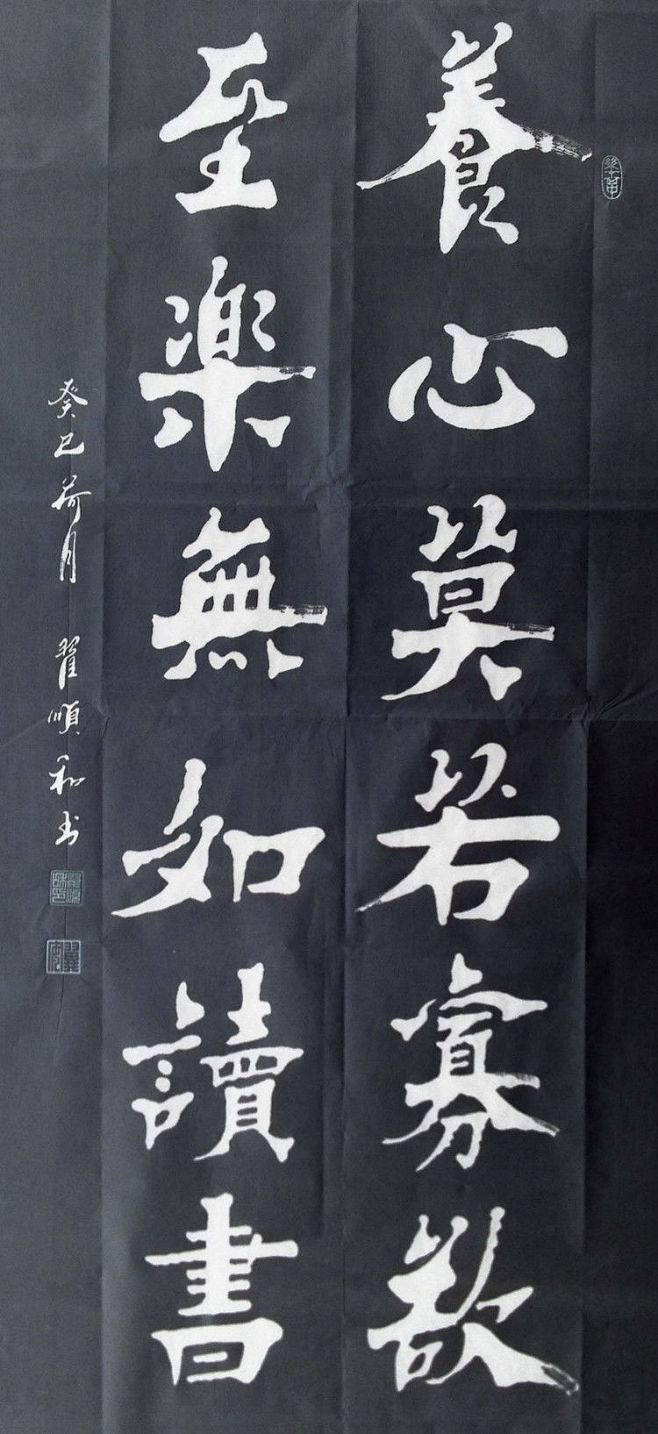 養心莫若寡欲
至樂無如讀書
癸巳荷月 翟順和书